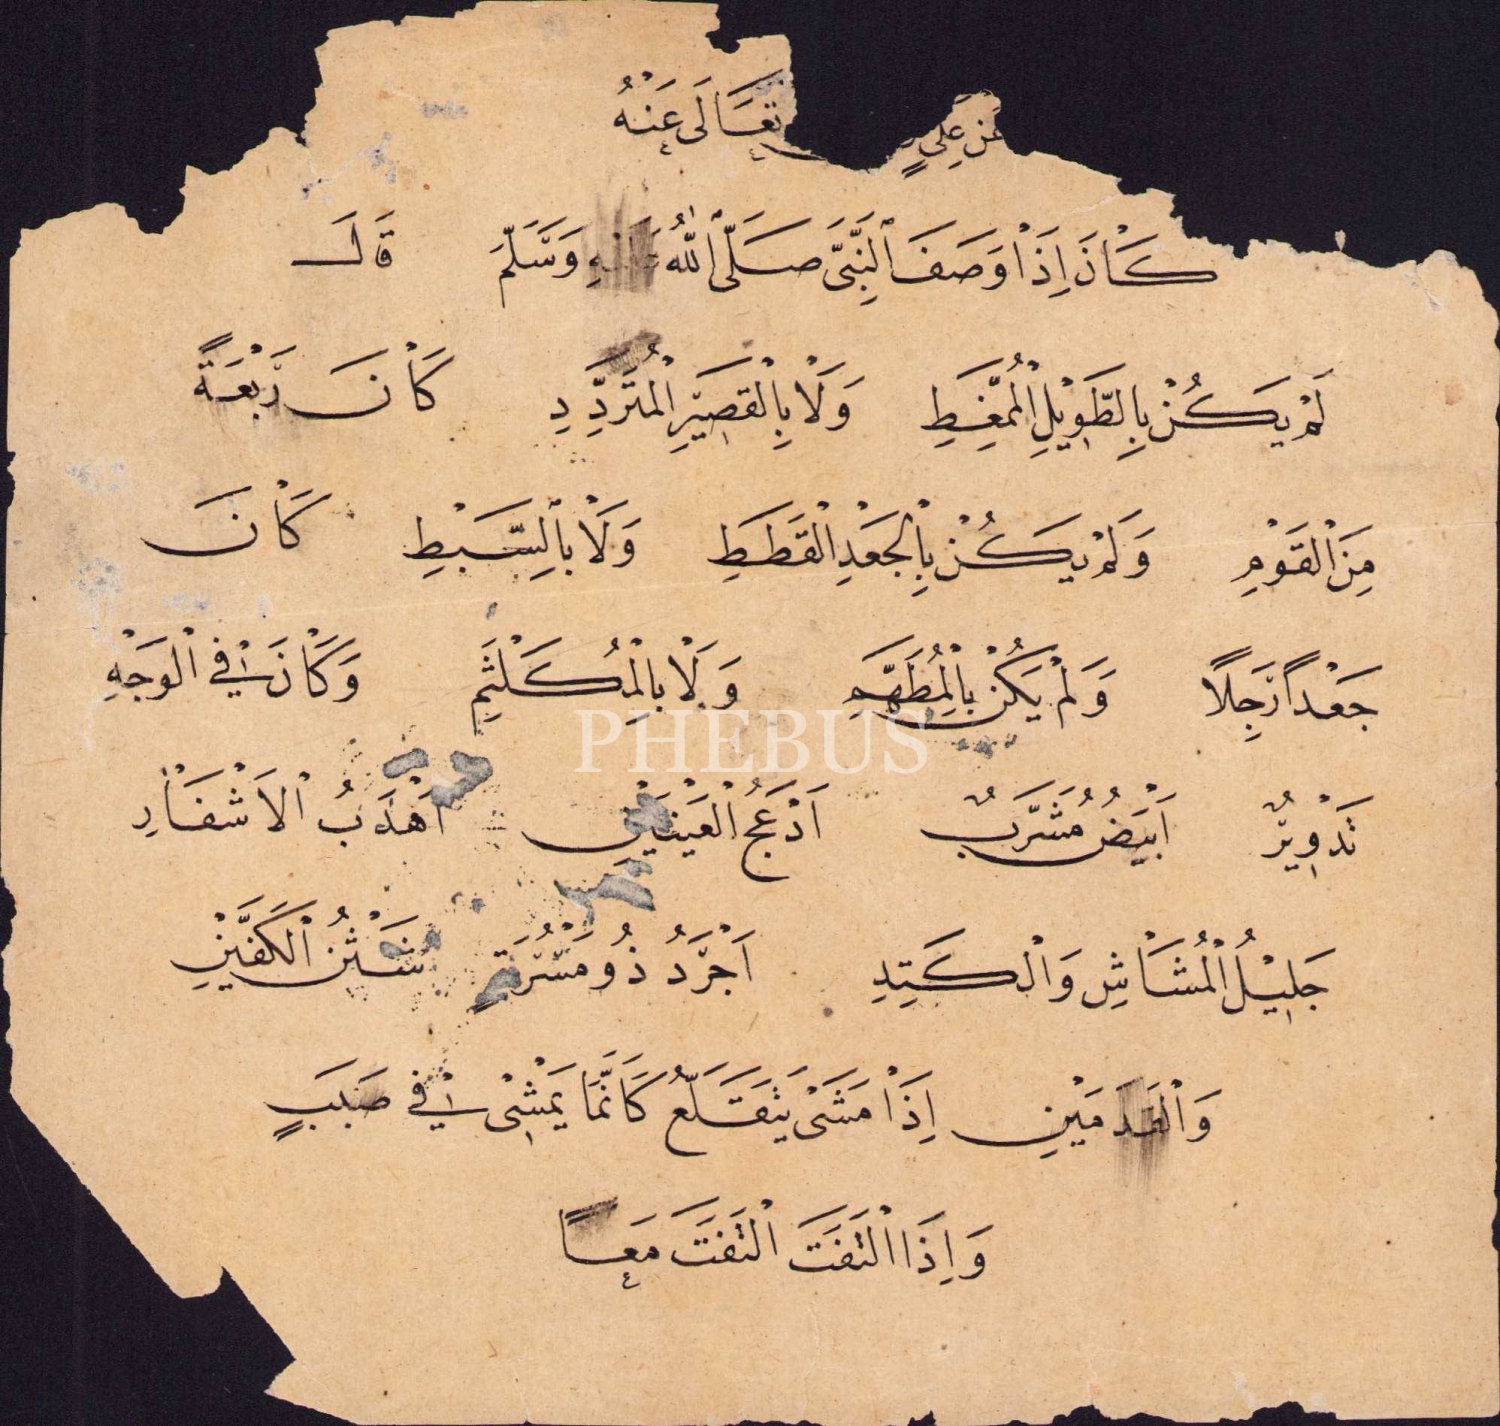 عَنْ عَلِيٍّ تَعَالَى عَنْهُ
كَانَ اِذَا وَصَفَ النَّبِيَّ صَلَّى اللّٰهُ عَلَيْهِ وَسَلَّمَ قَالَ
لَمْ يَكُنْ بِالطَّوِيلِ الْمُمَّغِطِ وَلَا بِالْقَصِيرِ الْمُتَرَدِّدِ كَانَ رَبْعَةً
مِنَ الْقَوْمِ وَلَمْ يَكُنْ بِالْجَعْدِ الْقَطَطِ وَلَا بِالسَّبْطِ كَانَ
جَعْدًا رَجِلًا وَلَمْ يَكُنْ بِالْمُطَهَّمِ وَلَا بِالْمُكَلْثَمِ وَكَانَ فِي الْوَجْهِ
PHEBUS
تَدْوِيرٌ اَبْيَضُ مُشَرَّبٌ اَدْعَجُ الْعَيْنَيْنِ اَهْدَبُ الْاَشْفَارِ
جَلِيلُ الْمُشَاشِ وَالْكَتِدِ اَجْرَدُ ذُو مَسْرُبَةٍ شَثْنُ الْكَفَّيْنِ
وَالْقَدَمَيْنِ اِذَا مَشَى يَتَقَلَّعُ كَاَنَّمَا يَمْشِي فِي صَبَبٍ
وَاِذَا الْتَفَتَ الْتَفَتَ مَعًا